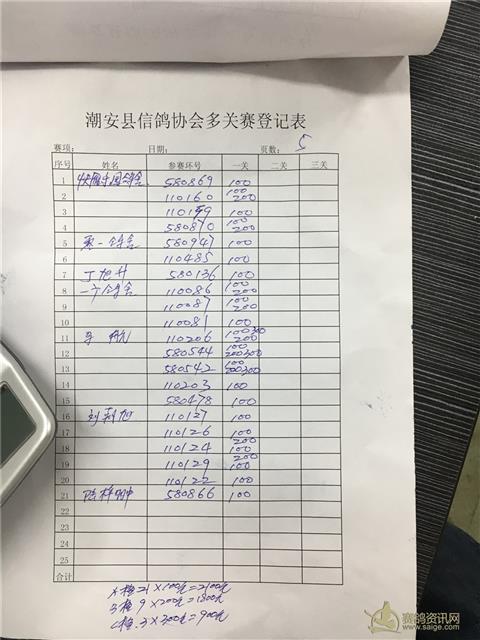 潮安县信鸽协会多关赛登记表
赛项: 日期: 页数: 5
序号 姓名 参赛环号 一关 二关 三关
1 580869 100
2 110160 100 200
3 110159 100
4 580870 100 200
5 鸽舍 580947 100
6 110485 100
7 丁旭升 580136 100
8 一个鸽舍 110086 100 200
9 110087 100 200
10 110081 100
11 110206 100 300 200
12 580544 100 200 300
13 580542 100 200 300
14 110203 100
15 580478 100
16 110127 100
17 110126 100
18 110124 200 100
19 110129 200 100
20 110122 100
21 580866 100
22
23
24
25
合计
21×100元=2100元
9×200元=1800元
3×300元=900元
赛鸽资讯网
www.saige.com